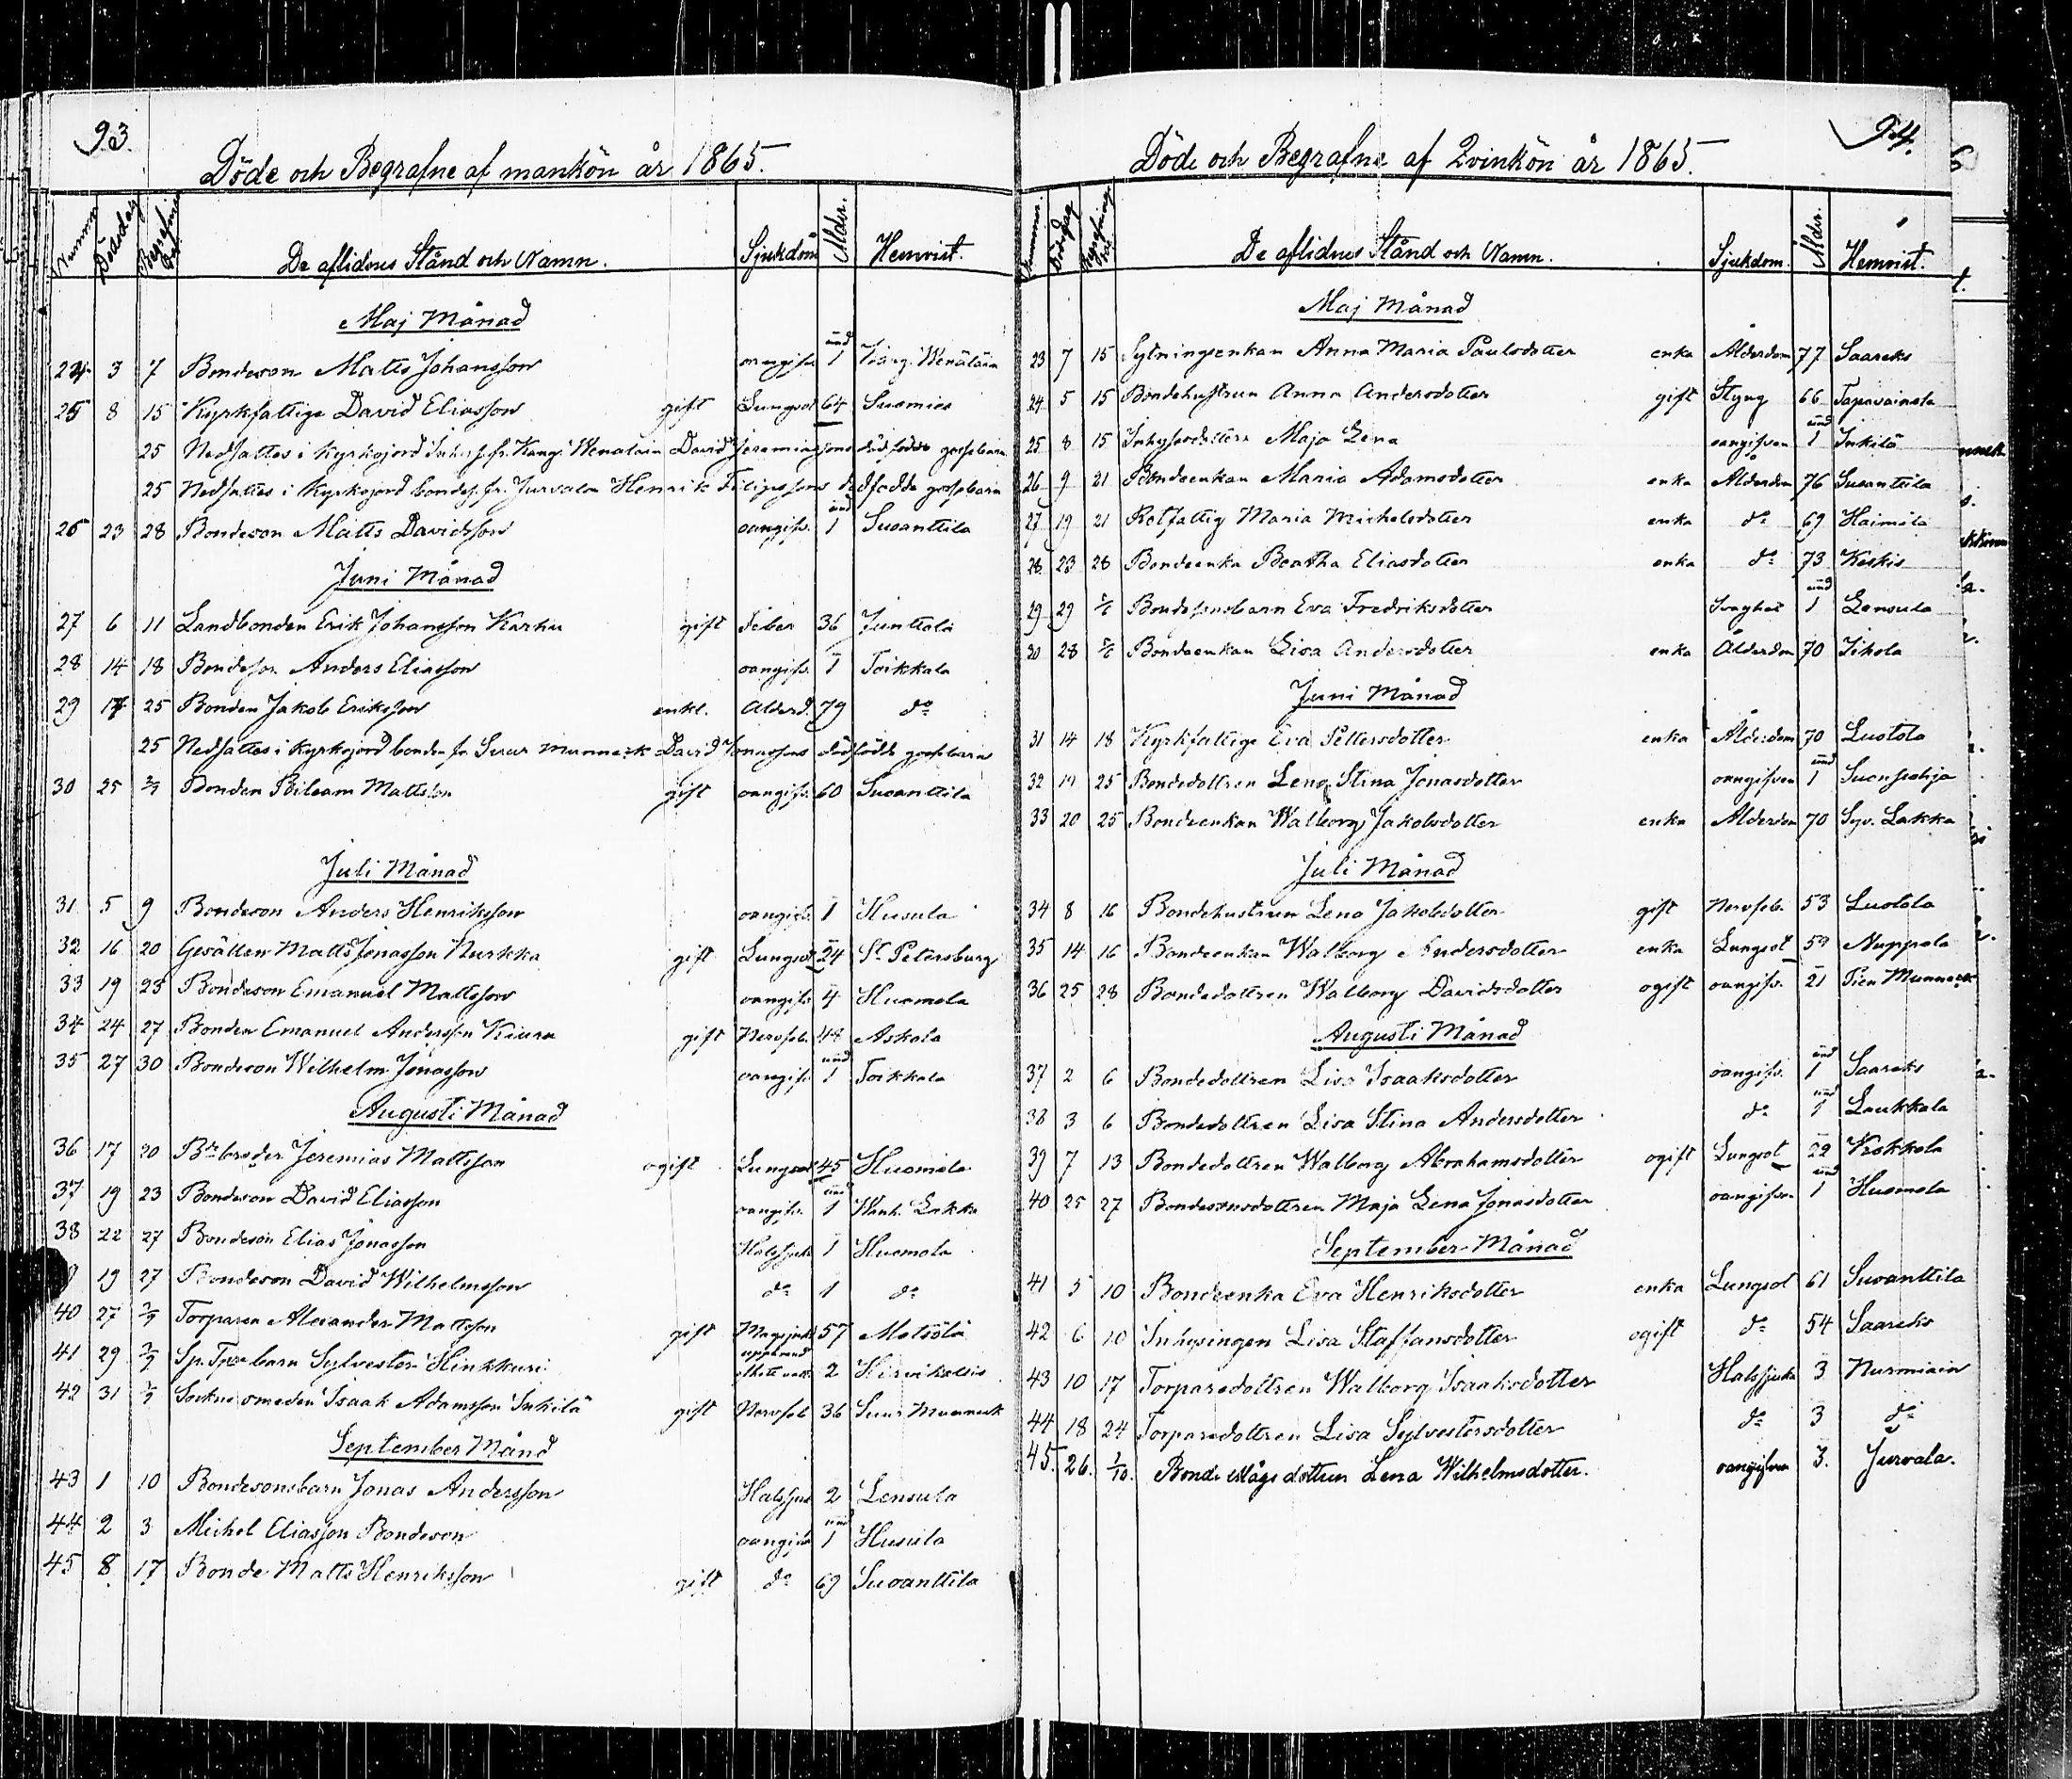 93.
Döde och Begrafne af mankön år 1865.
Nummer Dödsdag De aflidnes Stånd och Namn. Sjukdom Ålder. Hemvist.
Maj Månad
24 3 7 Bondeson Matts Johansson oangifv. 1
25 8 15 Kyrkfattige David Eliasson gift Lungsot 64 Suomies
25 Nedsattes i Kyrkojord David Jeremiassons dödfödde gossebarn
25 Nedsattes i Kyrkojord bondes. fr. Jurvala Henrik Filipssons dödfödde gossebarn
26 23 28 Bondeson Matts Davidsson oangifv. 1 Suoanttila
Juni Månad
27 6 11 Landbonden Erik Johansson Karhu gift Feber 36 Junttola
28 14 18 Bondeson Anders Eliasson oangifv. 1 Toikkala
29 17 25 Bonden Jakob Eriksson enkl. Ålderd. 79 do
25 Nedsattes i Kyrkojord bonden fr Suur Munne k David Jonassons dödfödde gossebarn
30 25 2/7 Bonden Bileam Mattsson gift oangifv. 60 Suoanttila
Juli Månad
31 5 9 Bondeson Anders Henriksson oangifv. 1 Husula
32 16 20 Gesällen Matts Jonasson Nurkka gift Lungsot 24 St Petersburg
33 19 23 Bondeson Emanuel Mattsson oangifv. 4 Huomola
34 24 27 Bonden Emanuel Andersson Kiuru gift Nervfeb. 48 Askola
35 27 30 Bondeson Wilhelm Jonasson oangifv. 1 Toikkala
Augusti Månad
36 17 20 Bdebroder Jeremias Mattsson ogift Lungsot 45 Huomola
37 19 23 Bondeson David Eliasson oangifv. 1 Wanh. Lakka
38 22 27 Bondeson Elias Jonasson Halssjuk 1 Huomola
19 27 Bondeson David Wilhelmsson do 1 do
40 27 3/9 Torparen Alexander Mattsson gift Magsjuk 57 Motsola
41 29 3/9 Sylvester Hinkkuri 2
42 31 3/9 Socknesmeden Isaak Adamsson Inkilä gift Nervfeb 36 Suur Munneek
September Månd
43 1 10 Bondesonsbarn Jonas Andersson Halssjuk 2 Lensula
44 2 3 Michel Eliasson Bondeson oangifv 1 Husula
45 8 17 Bonde Matts Henriksson gift do 69 Suoanttila
94.
Döde och Begrafne af Qvinkön år 1865.
Nummer. Dödsdag De aflidnes Stånd och Namn. Sjukdom. Ålder. Hemvist.
Maj Månad
23 7 15 Sytningsenkan Anna Maria Paulsdotter enka Ålderdom 77 Saareks
24 5 15 Bondehustrun Anna Andersdotter gift Styng 66 Tapavainola
25 8 15 Inhysesdottern Maja Lena oangifven 1 Inkilä
26 9 21 Bondeenkan Maria Adamsdotter enka Ålderdom 76 Suoanttila
27 19 21 Rotfattig Maria Michelsdotter enka do 69 Haimila
28 23 28 Bondeenka Beatha Eliasdotter enka do 73 Keskis
29 29 5/6 Bondesonsbarn Eva Fredriksdotter Svaghet 1 Lensula
30 28 5/6 Bondeenkan Lisa Andersdotter enka Ålderdom 70 Iihola
Juni Månad
31 14 18 Kyrkfattige Eva Pettersdotter enka Ålderdom 70 Luotola
32 19 25 Bondedottren Lena Stina Jonasdotter oangifven 1 Suonpohja
33 20 25 Bondeenkan Walborg Jakobsdotter enka Ålderdom 70 Syv. Lakka
Juli Månad
34 8 16 Bondehustrun Lena Jakobsdotter gift Nervfeb. 53 Luotola
35 14 16 Bondeenkan Walborg Andersdotter enka Lungsot 59 Nuppola
36 25 28 Bondedottren Walborg Davidsdotter ogift oangifv. 21 Pien Munne
Augusti Månad
37 2 6 Bondedottren Lisa Isaaksdotter oangifv. 1 Saareks
38 3 6 Bondedottren Lisa Stina Andersdotter do 1 Laukkala
39 7 13 Bondedottren Walborg Abrahamsdotter ogift Lungsot 22 Kokkola
40 25 27 Bondesonsdottren Maja Lena Jonasdotter oangifven 1 Huomola
September Månad
41 5 10 Bondeenka Eva Henriksdotter enka Lungsot 61 Suoanttila
42 6 10 Inhysingen Lisa Staffansdotter ogift do 54 Saareks
43 10 17 Torparedottren Walborg Isaaksdotter Halssjuka 3 Nurmiain
44 18 24 Torparedottren Lisa Sylvestersdotter do 3 do
45. 26. 1/10. Bonde Mågs dottren Lena Wilhelmsdotter. oangifven 3. Jurvala.